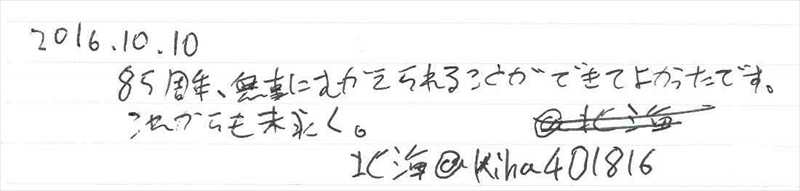 2016.10.10
85周年、無事にむかえられることができてよかったです。
これからも末永く。
@北海
北海@kiha401816